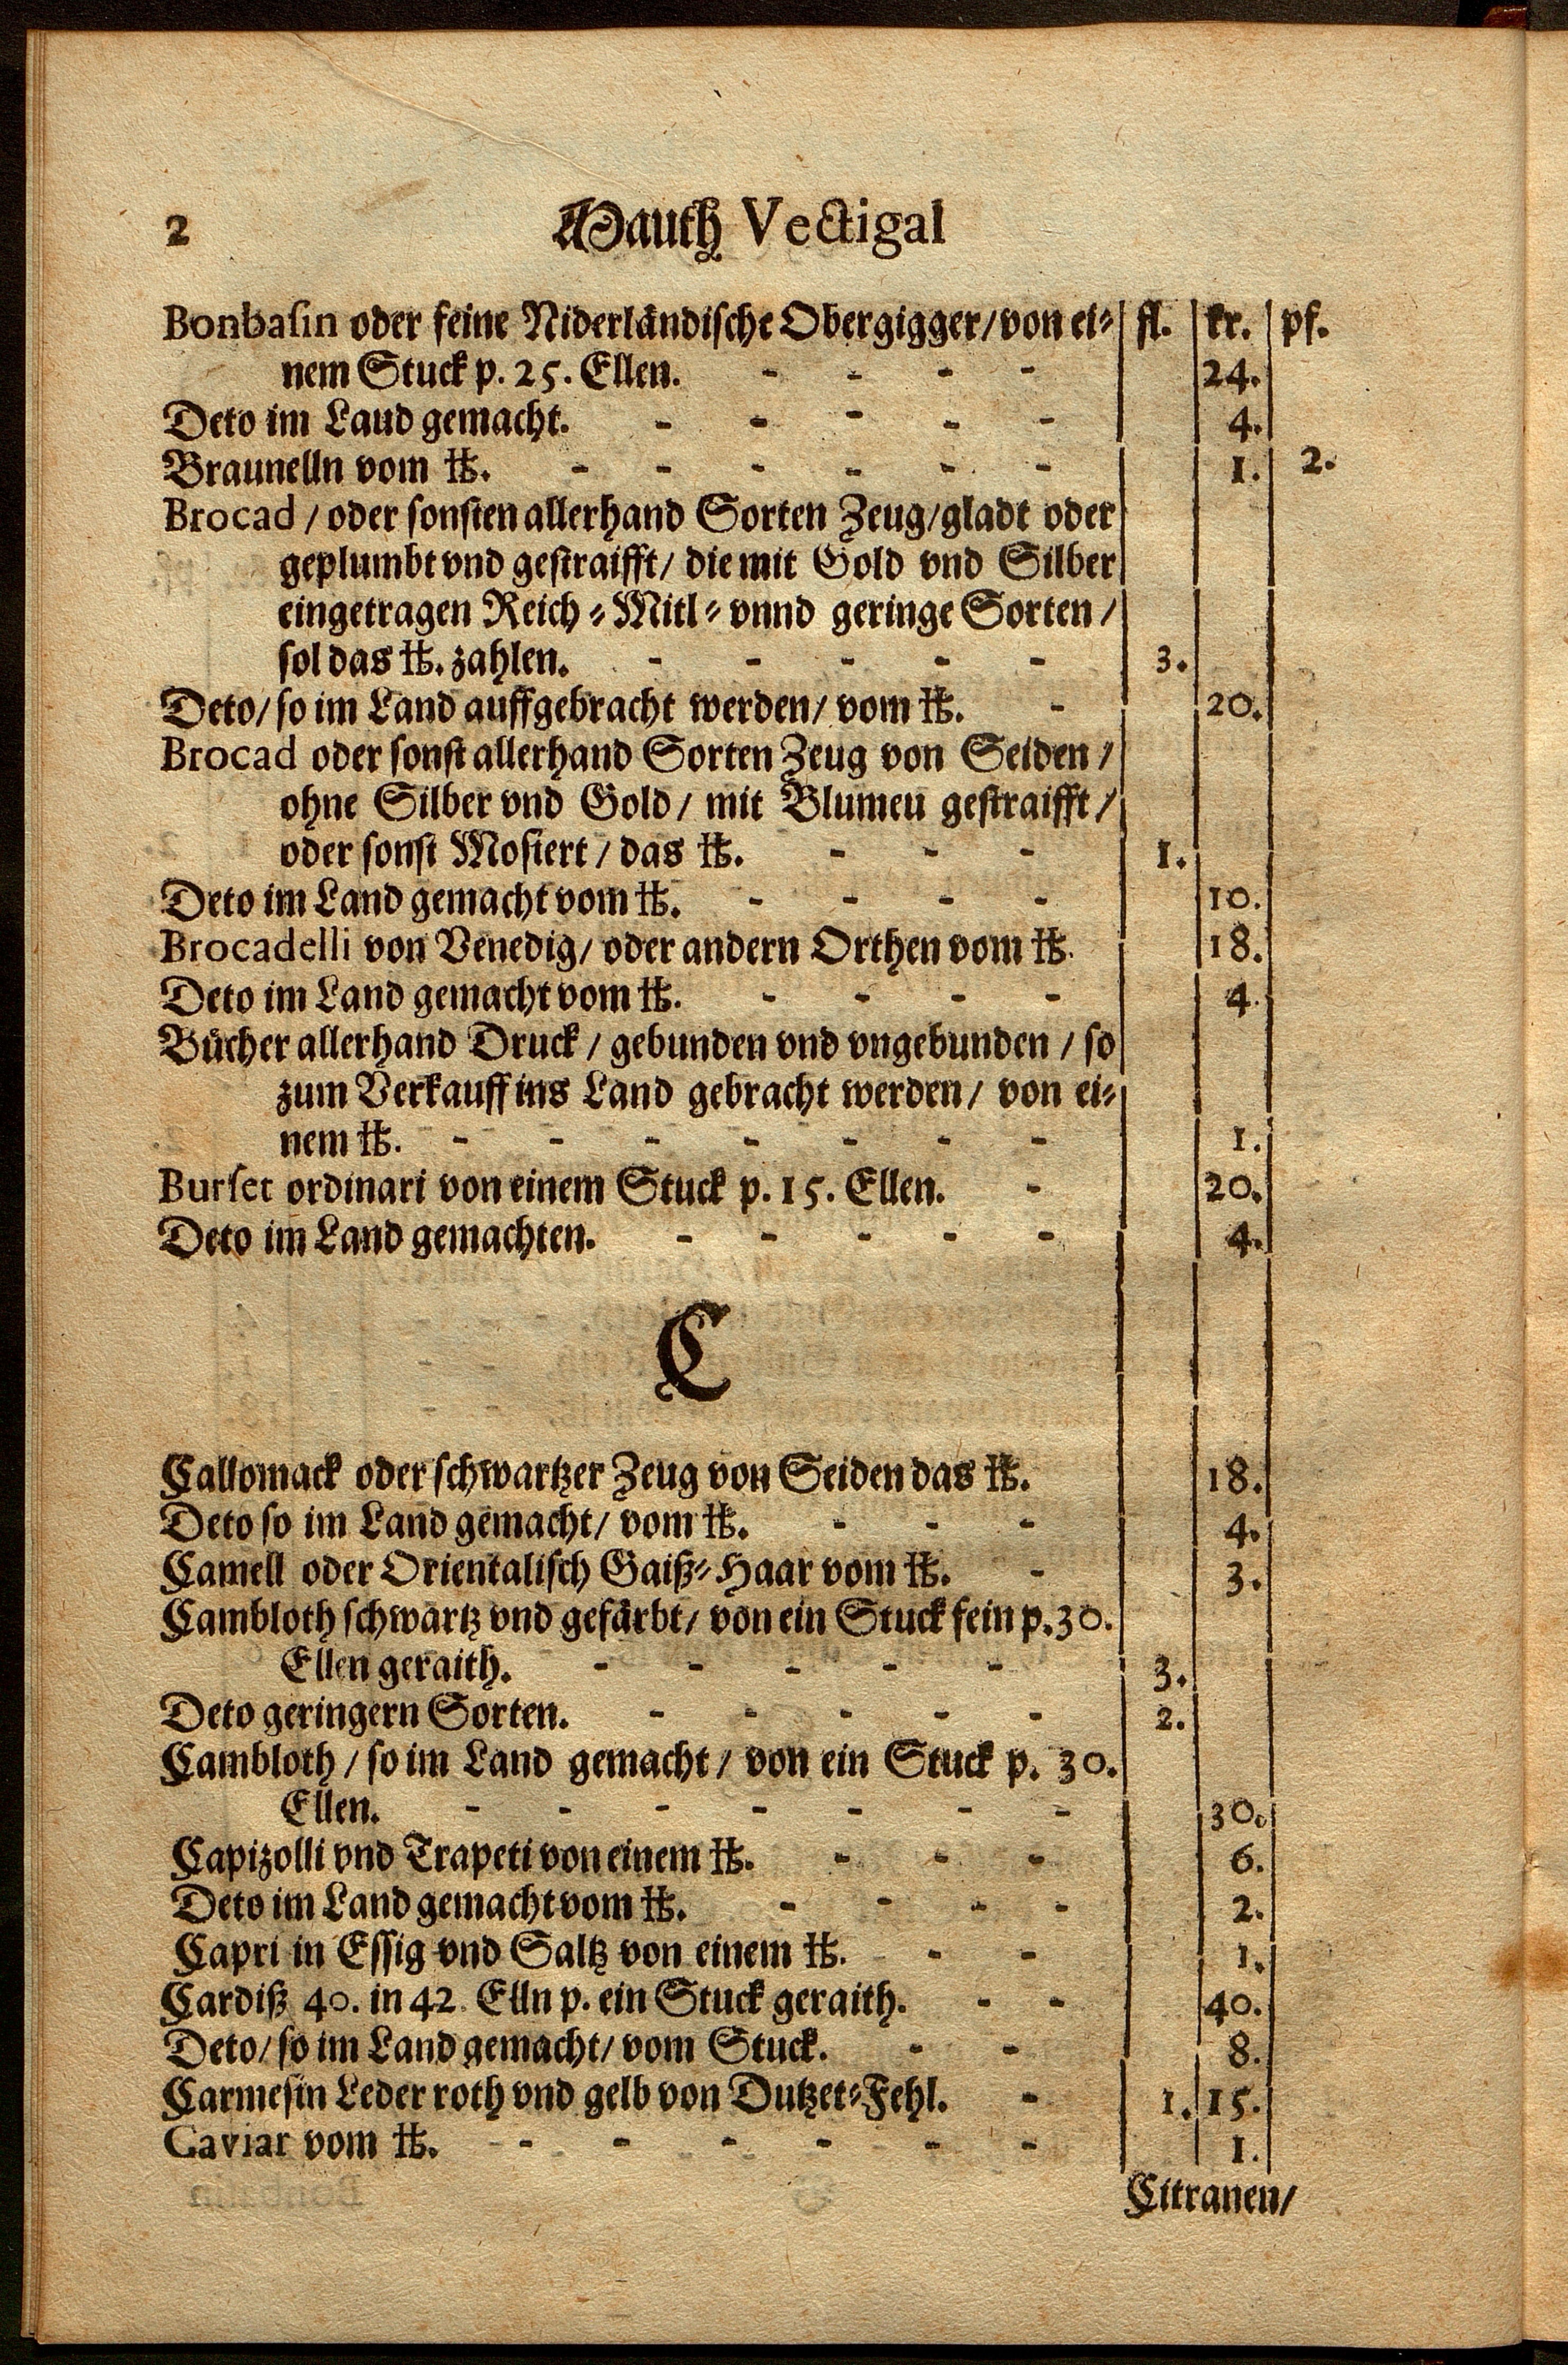 2 Mauth Vectigal
Bonbasin oder feine Niderländische Obergigger/von ei- fl. kr. pf.
nem Stuck p. 25. Ellen. - - - - 24.
Deto im Laud gemacht. - - - - - 4.
Braunelln vom ℔. - - - - - - 1. 2.
Brocad / oder sonsten allerhand Sorten Zeug/gladt oder
geplumbt vnd gestraifft/ die mit Gold vnd Silber
eingetragen Reich-Mitl-vnnd geringe Sorten/
sol das ℔. zahlen. - - - - - 3.
Deto/ so im Land auffgebracht werden/ vom ℔. - 20.
Brocad oder sonst allerhand Sorten Zeug von Seiden/
ohne Silber vnd Gold/ mit Blumeu gestraifft/
oder sonst Mosiert/ das ℔. - - - 1.
Deto im Land gemacht vom ℔. - - - - 10.
Brocadelli von Venedig/ oder andern Orthen vom ℔. 18.
Deto im Land gemacht vom ℔. - - - - 4.
Bücher allerhand Druck/ gebunden vnd vngebunden/ so
zum Verkauff ins Land gebracht werden/ von ei-
nem ℔. - - - - - - - 1.
Burset ordinari von einem Stuck p. 15. Ellen. - 20.
Deto im Land gemachten. - - - - - 4.
C
Callomack oder schwartzer Zeug von Seiden das ℔. 18.
Deto so im Land gemacht/ vom ℔. - - - 4.
Camell oder Orientalisch Gaiß-Haar vom ℔. - 3.
Cambloth schwartz vnd gefärbt/ von ein Stuck fein p. 30.
Ellen geraith. - - - - - 3.
Deto geringern Sorten. - - - - - 2.
Cambloth/ so im Land gemacht/ von ein Stuck p. 30.
Ellen. - - - - - - - 30.
Capizolli vnd Trapeti von einem ℔. - - - 6.
Deto im Land gemacht vom ℔. - - - - 2.
Capri in Essig vnd Saltz von einem ℔. - - 1.
Cardiß 40. in 42. Elln p. ein Stuck geraith. - - 40.
Deto/ so im Land gemacht/ vom Stuck. - - 8.
Carmesin Leder roth vnd gelb von Dutzet-Fehl. - 1. 15.
Caviar vom ℔. - - - - - - 1.
Citranen/